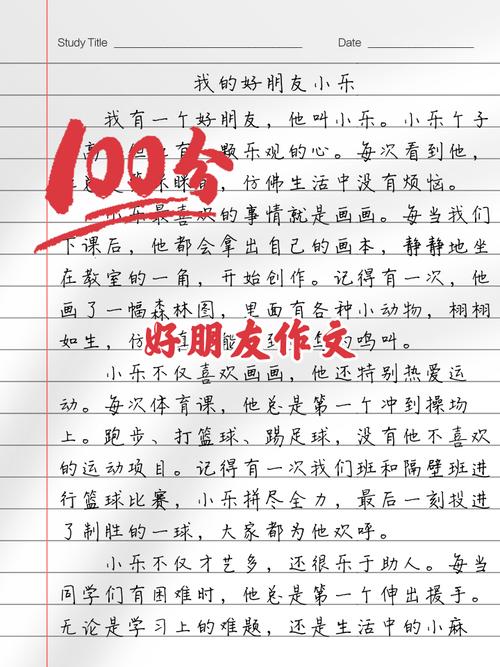 Study Title
Date
我的好朋友小乐
我有一个好朋友，他叫小乐。小乐个子
颗乐观的心。每次看到他，
眯眯，仿佛生活中没有烦恼。
100分
小乐最喜欢的事情就是画画。每当我们
下课后，他都会拿出自己的画本，静静地坐
在教室的一角，开始创作。记得有一次，他
画了一幅森林图，里面有各种小动物，栩栩
如生，仿
的鸣叫。
好朋友作文
小乐不仅喜欢画画，他还特别热爱运
动。每次体育课，他总是第一个冲到操场
上。跑步、打篮球、踢足球，没有他不喜欢
的运动项目。记得有一次我们班和隔壁班进
行篮球比赛，小乐拼尽全力，最后一刻投进
了制胜的一球，大家都为他欢呼。
小乐不仅才艺多，还很乐于助人。每当
同学们有困难时，他总是第一个伸出援手。
无论是学习上的难题，还是生活中的小麻